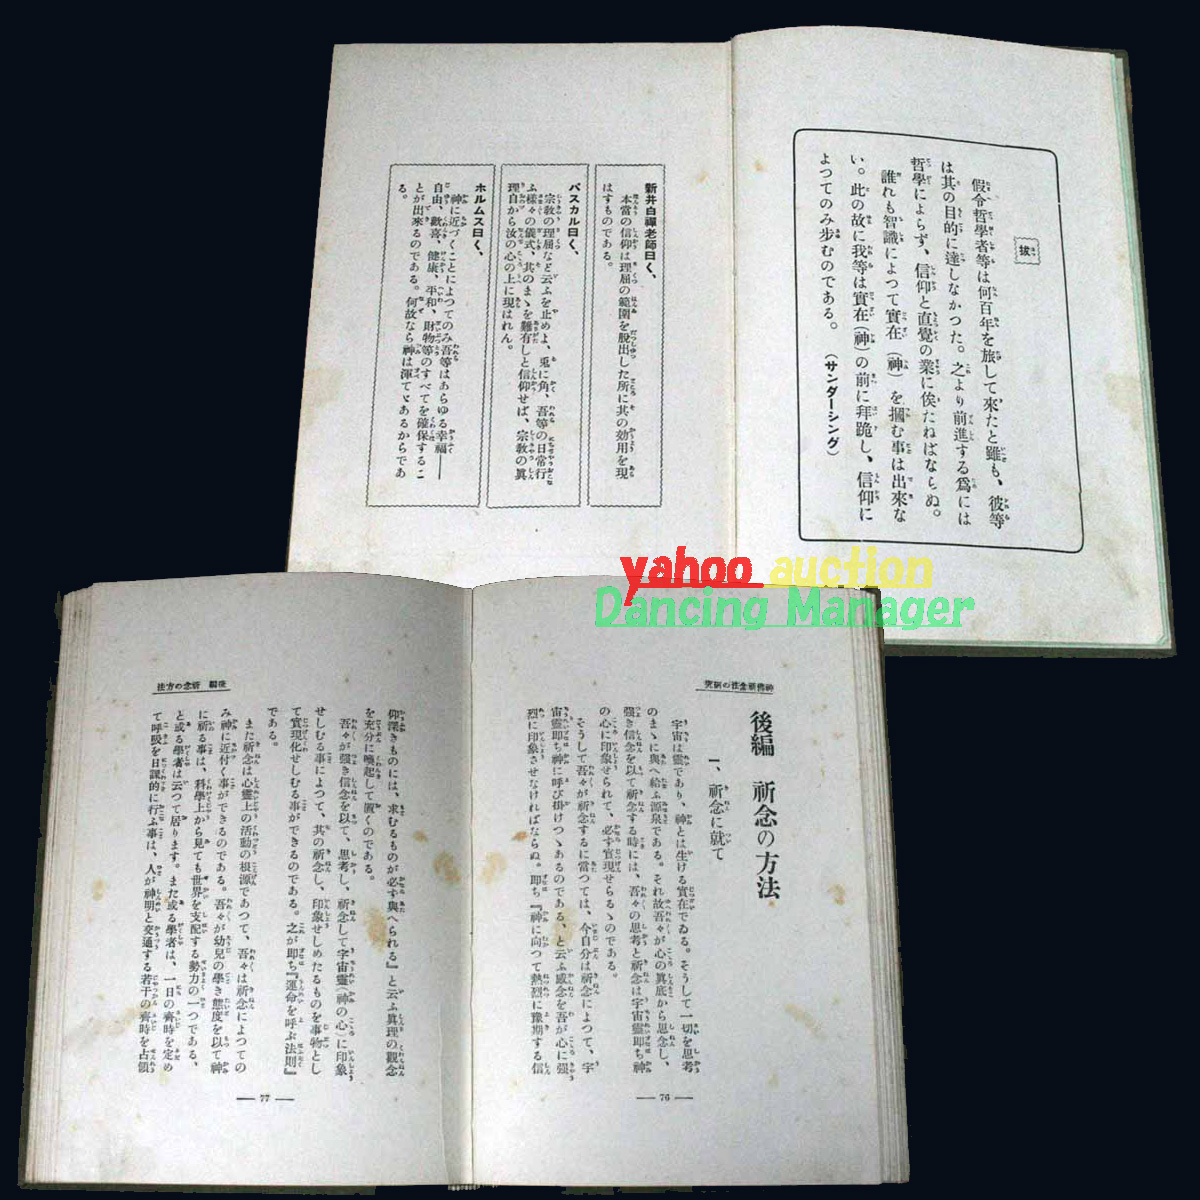 跋
假令哲學者等は何百年を旅して來たと雖も、彼等
は其の目的に達しなかつた。之より前進する爲には
哲學によらず、信仰と直覺の業に俟たねばならぬ。
誰れも智識によつて實在(神)を摑む事は出來な
い。此の故に我等は實在(神)の前に拜跪し、信仰に
よつてのみ步むのである。(サンダーシング)
新井白禪老師曰く、
本當の信仰は理屈の範圍を脫出した所に其の効用を現
はすものである。
パスカル曰く、
宗敎の理屈など云ふを止めよ、兎に角、吾等の日常行
ふ樣々の儀式、其のまゝを難有しと信仰せば、宗敎の眞
理自から汝の心の上に現はれん。
ホルムス曰く、
神に近づくことによつてのみ吾等はあらゆる幸福——
自由、歡喜、健康、平和、財物等のすべてを確保するこ
とが出來るのである。何故なら神は渾てゞあるからであ
る。
yahoo auction
Dancing Manager
神佛祈念法の硏究
後編 祈念の方法
一、祈念に就て
宇宙は靈であり、神とは生ける實在でゐる。そうして一切を思考
のまゝに與へ給ふ源泉である。それ故吾々が心の眞底から思念し、
强き信念を以て祈念する時には、吾々の思考と祈念は宇宙靈卽ち神
の心に印象せられて、必ず實現せらるゝのである。
そうして吾々が祈念するに當つては、今自分は祈念によつて、宇
宙靈卽ち神に呼び掛けつゝあるのである、と云ふ感念を吾が心に强
烈に印象させなければならぬ。卽ち『神に向つて熱烈に豫期する信
76
後編 祈念の方法
仰深きものには、求むるものが必ず與へられる』と云ふ眞理の觀念
を充分に喚起して置くのである。
吾々が强き信念を以て、思考し、祈念して宇宙靈(神の心)に印象
せしむる事によつて、其の祈念し、印象せしめたるものを事物とし
て實現化せしむる事ができるのである。之が卽ち『運命を呼ぶ法則』
である。
また祈念は心靈上の活動の根源であつて、吾々は祈念によつての
み神に近付く事ができるのである。吾々が幼兒の學き態度を以て神
に祈る事は、科學上から見ても世界を支配する勢力の一つである、
と或る學者は云つて居ります。また或る學者は、一日の齊時を定め
て呼吸を日課的に行ふ事は、人が神明と交通する若干の齊時を占領
77